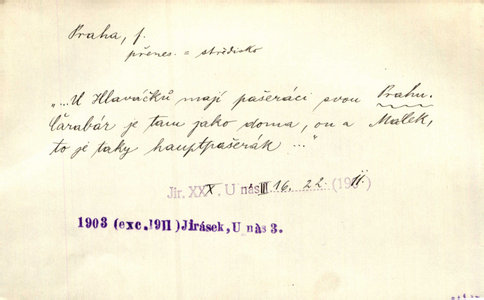 Praha, f.
přenes. = středisko
„...U Hlaváčků mají pašeráci svou Prahu.
Čarabár je tam jako doma, on a Málek,
to je taky hauptpašerák ..."
Jir. XXX. U nás III 16. 22. (19011.)
1903 (exc.1911) Jirásek, U nás 3.